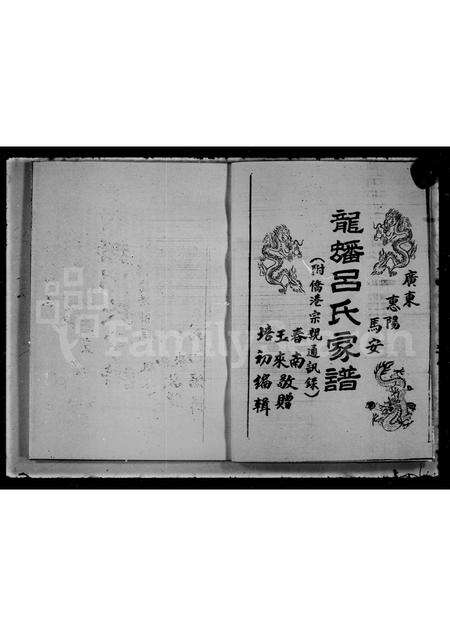 廣東
惠陽
馬安
龍蟠呂氏家譜
(附僑港宗親通訊錄)
春南
玉來敬贈
培初編輯
FamilySearch